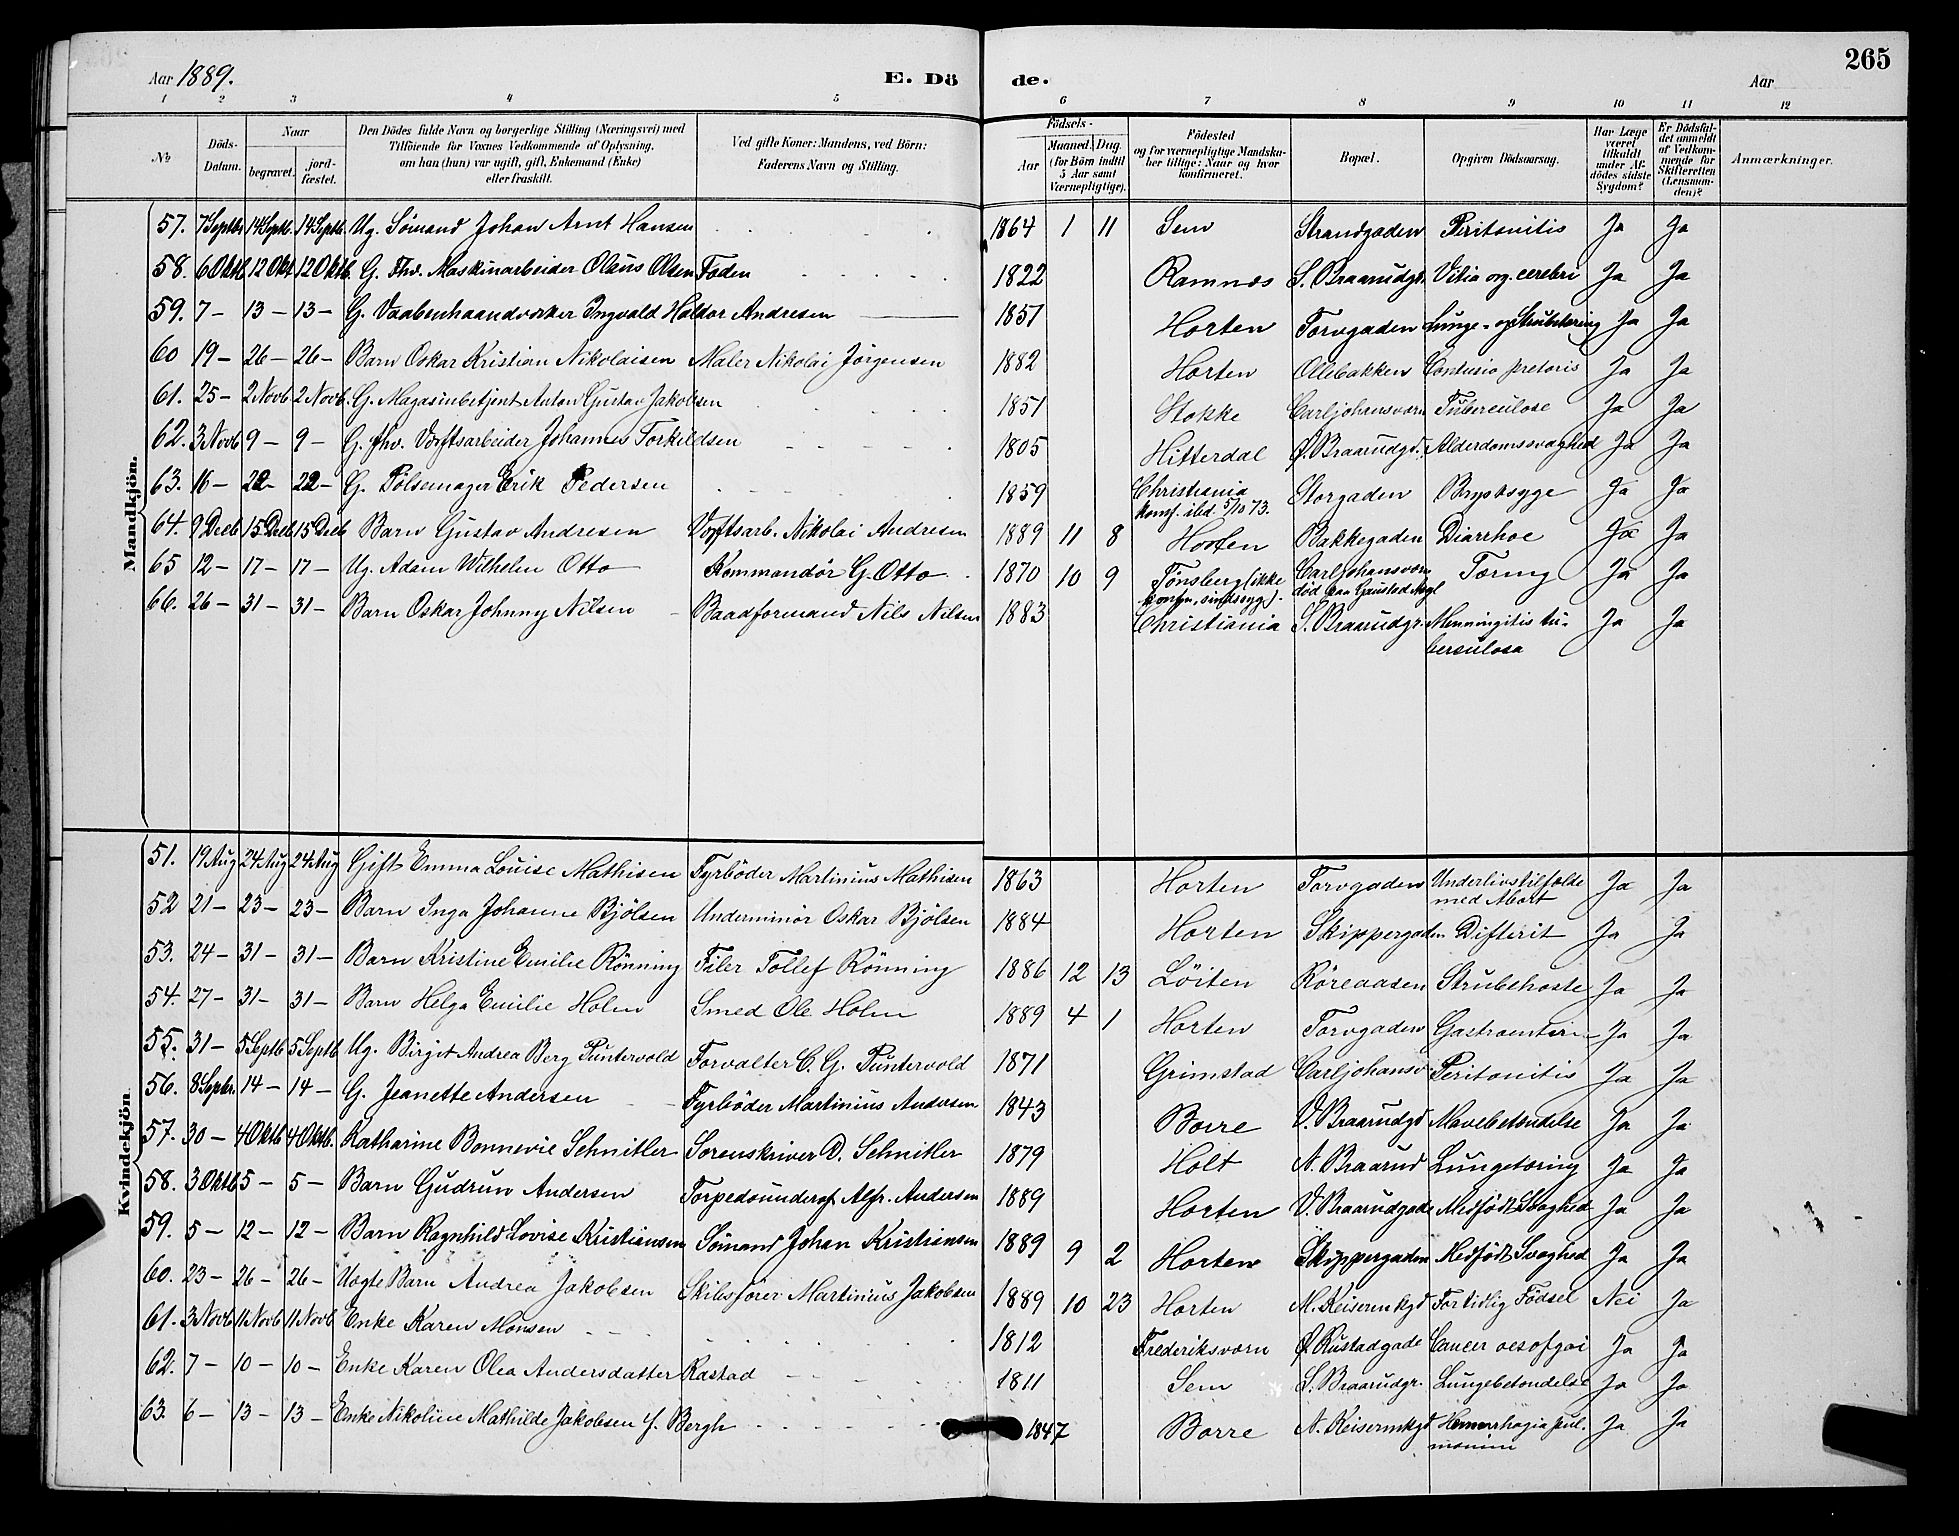 265
Aar 1889. E. Dö de. Aar
1 2 3 4 5 6 7 8 9 10 11 12
No Döds-Datum. Naar begravet. jordfæstet. Den Dödes fulde Navn og borgerlige Stilling (Næringsvei) med Tilföiende for Voxnes Vedkommende af Oplysning, om han (hun) var ugift, gift, Enkemand (Enke) eller fraskilt. Ved gifte Koner: Mandens, ved Börn: Faderens Navn og Stilling. Födsels- Aar Maaned Dag. (for Börn indtil 5 Aar samt Værnepligtige). Födested og for værnepligtige Mandskaber tillige: Naar og hvor konfirmeret. Bopæl. Opgiven Dödsaarsag. Har Læge været tilkaldt under Afdödes sidste Sygdom? Er Dödsfaldet anmeldt af Vedkommende for Skifteretten (Lensmanden)? Anmærkninger.
Mandkjön.
57. 7 Septbr 14 Septb. 14 Septb. Ug. Sömand Johan Arnt Hansen 1864 1 11 Sem Strandgaden Peritonitis Ja Ja
58. 6 Oktb 12 Okt 12 Oktb. G. Fhv. Maskinarbeider Olaus Olsen Foden 1822 Ramnæs S. Braarudgt. Vitia org. cerebri Ja Ja
59. 7 – 13 – 13 – G. Vaabenhaandværker Ingvald Haldor Andresen 1857 Horten Torvgaden Lunge- og Strubetæring Ja Ja
60 19 – 26 – 26 – Barn Oskar Kristian Nikolaisen Maler Nikolai Jörgensen 1882 Horten Olebakken Contusio pectoris Ja Ja
61. 25 – 2 Novb 2 Novb. G. Magasinbetjent Anton Gustav Jakobsen 1851 Stokke Carljohansværn Tuberculose Ja Ja
62. 3 Novb 9 – 9 – G. fhv. Værftsarbeider Johannes Torkildsen 1805 Hitterdal Ø. Braarudgd. Alderdomssvaghed Ja Ja
63. 16 – 22 – 22 – G. Pölsemager Erik Pedersen 1859 Christiania Storgaden Brystsyge Ja Ja
konf. ibd. 5/10 73.
64. 9 Decb 15 Decb 15 Decb Barn Gustav Andresen Værftsarb. Nikolai Andresen 1889 11 8 Horten Bakkegaden Diarrhoe Ja Ja
65 12 – 17 – 17 – Ug. Adam Wilhelm Otto Kommandör G. Otto 1870 10 9 Tønsberg (ikke Carljohansværn Tæring Ja Ja
konfm, sindssyg). död paa Gaustad Asyl
66. 26 – 31 – 31 – Barn Oskar Johnny Nilsen Baadformand Nils Nilsen 1883 Christiania S. Braarudgr. Menningitis tu- Ja Ja
berculosa
Kvindekjön.
51. 19 Aug 24 Aug 24 Aug Gift Emma Louise Mathisen Fyrböder Martinius Mathisen 1863 Horten Torvgaden Underlivstilfælde Ja Ja
med Abort
52 21 – 23 – 23 – Barn Inga Johanne Bjölsen Underminör Oskar Bjölsen 1884 Horten Skippergaden Difterit Ja Ja
53. 24 – 31 – 31 – Barn Kristine Emilie Rönning Filer Tollef Rönning 1886 12 13 Löiten Röreaasen Strubehoste Ja Ja
54. 27 – 31 – 31 – Barn Helga Emilie Holm Smed Ole Holm 1889 4 1 Horten Torvgaden Gastroenteri Ja Ja
55. 31 – 5 Septb 5 Septb Ug. Birgit Andrea Berg Puntervold Forvalter C. G. Puntervold 1871 Grimstad Carljohansv Peritonitis Ja Ja
56. 8 Septbr. 14 – 14 – G. Jeanette Andersen Fyrböder Martinius Andersen 1843 Borre V. Braarudgd Mavebetændelse Ja Ja
57. 30 – 4 Oktb 4 Oktb. Katharine Bonnevie Schnitler Sorenskriver D. Schnitler 1879 Holt N. Braarud Lungetæring Ja Ja
58. 3 Oktb 5 – 5 – Barn Gudrun Andersen Torpedounderof. Alfr. Andersen 1889 Horten V. Braarudgade Medfödt Svaghed Ja Ja
59. 5 – 12 – 12 – Barn Ragnhild Lovise Kristiansen Sömand Johan Kristiansen 1889 9 2 Horten Skippergaden Medfödt Svaghed Ja Ja
60. 23 – 26 – 26 – Uægte Barn Andrea Jakobsen Skibsförer Martinius Jakobsen 1889 10 23 Horten M. Keisermkgd For tidlig Födsel Nei Ja
61. 3 Novb 11 Novb 11 Novb Enke Karen Monsen 1812 Frederiksværn Ø. Rustadgade Cancer oesofgai Ja Ja
62. 7 – 10 – 10 – Enke Karen Olea Andersdatter Rastad 1811 Sem S. Braarudgr. Lungebetændelse Ja Ja
63. 6 – 13 – 13 – Enke Nikoline Mathilde Jakobsen f. Bergh 1847 Borre N. Keisermkgd Hæmorrhagia pul- Ja Ja
monum